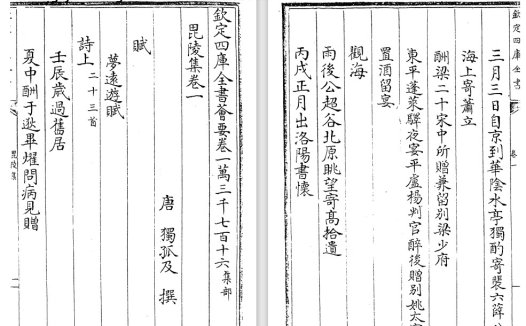 欽定四庫全書薈要卷一萬三千七百十六集部
毘陵集卷一
唐 獨孤及 撰
賦
夢遠遊賦
詩上二十三首
壬辰歲過舊居
夏中酬于逖畢燿問病見贈
毘陵集
欽定四庫全書
卷一
三月三日自京到華陰水亭獨酌寄裴六薛八
海上寄蕭立
酬梁二十宋中所贈兼留別梁少府
東平蓬萊驛夜宴平盧楊判官醉後贈別姚太
置酒留宴
觀海
雨後公超谷北原眺望寄高拾遺
丙戌正月出洛陽書懷